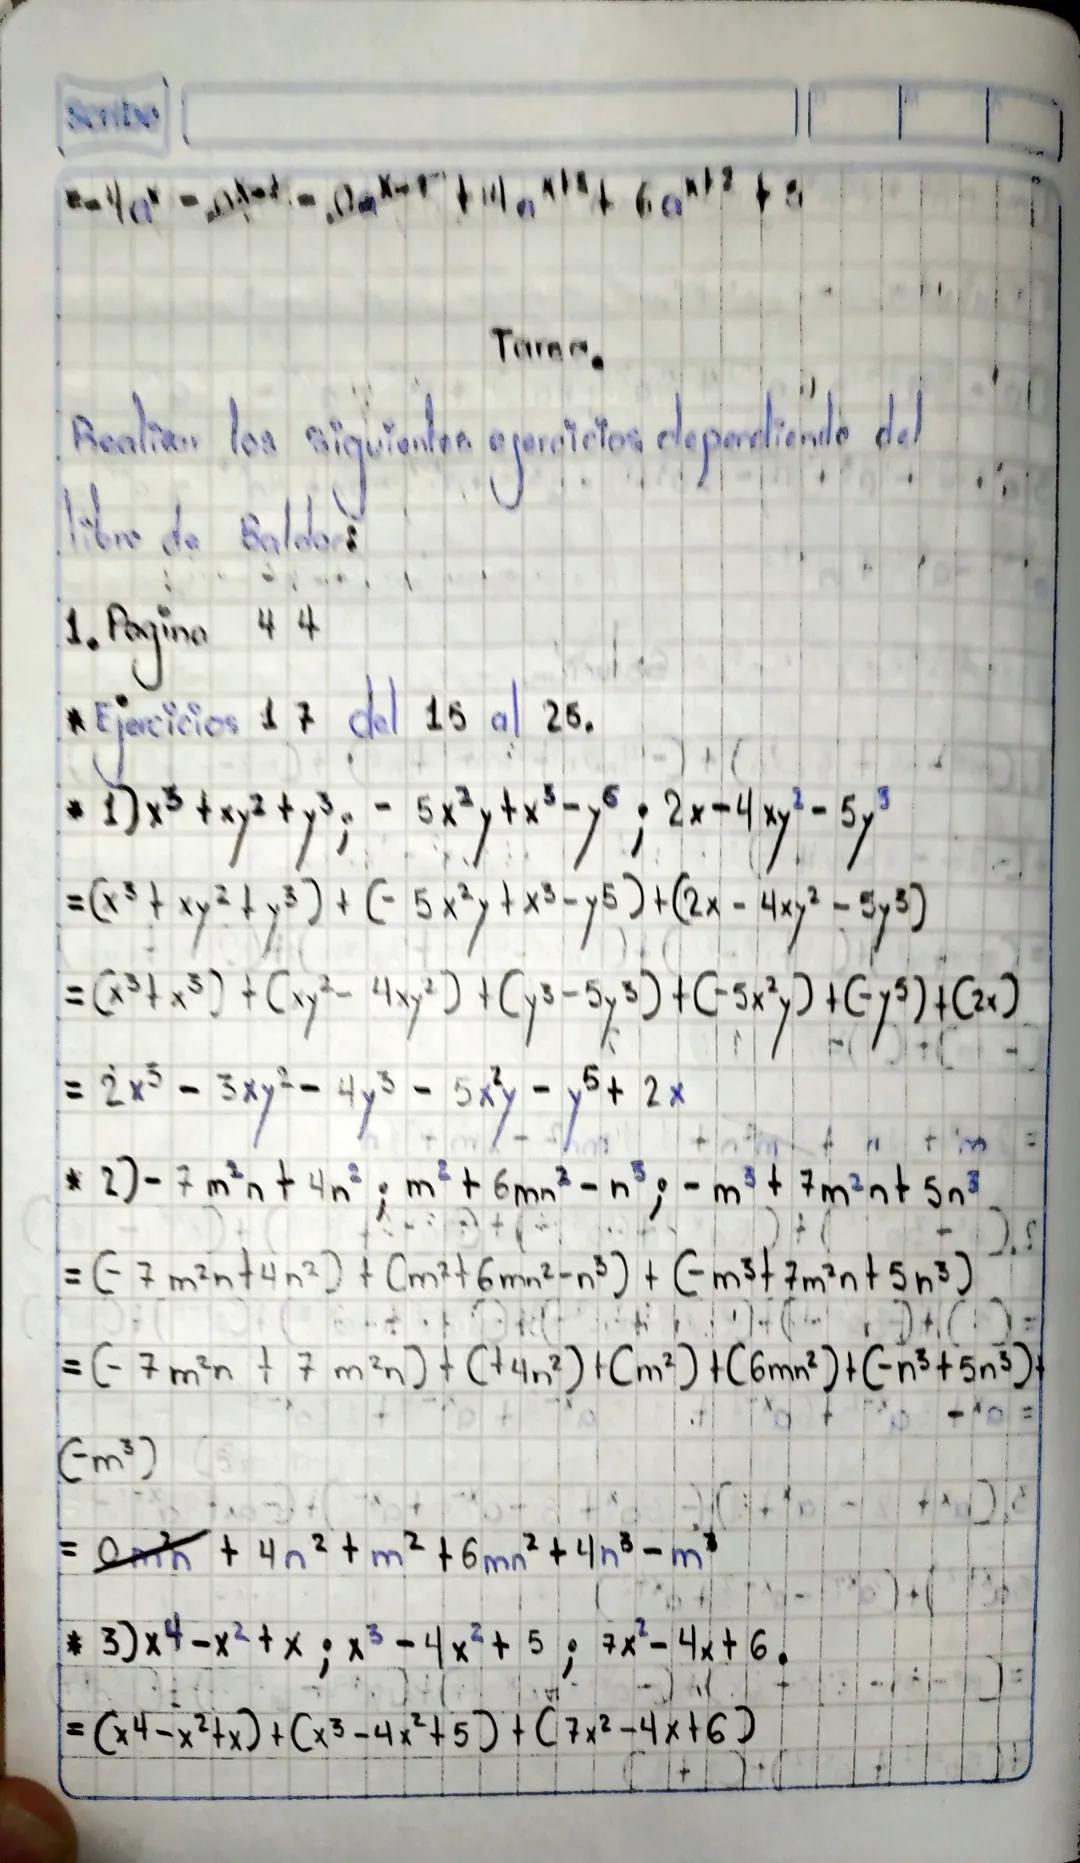 Scribe
Tarea.
Realizar los siguientes ejercicios dependiendo del
libro de Baldor:
1. Pagina 44
* Ejercicios 17 del 15 al 25.
* 1) x³ + xy² + y³ ; - 5x²y + x³ - y⁵ ; 2x - 4xy² - 5y³
= (x³ + xy² + y³) + (- 5x²y + x³ - y⁵) + (2x - 4xy² - 5y³)
= (x³ + x³) + (xy² - 4xy²) + (y³ - 5y³) + (-5x²y) + (-y⁵) + (2x)
= 2x³ - 3xy² - 4y³ - 5x²y - y⁵ + 2x
* 2) - 7m²n + 4n² ; m² + 6mn² - n³ ; - m³ + 7m²n + 5n³
= (- 7m²n + 4n²) + (m² + 6mn² - n³) + (-m³ + 7m²n + 5n³)
= (- 7m²n + 7m²n) + (+4n²) + (m²) + (6mn²) + (-n³ + 5n³) +
(-m³)
= 0m²n + 4n² + m² + 6mn² + 4n³ - m³
* 3) x⁴ - x² + x ; x³ - 4x² + 5 ; 7x² - 4x + 6.
= (x⁴ - x² + x) + (x³ - 4x² + 5) + (7x² - 4x + 6)